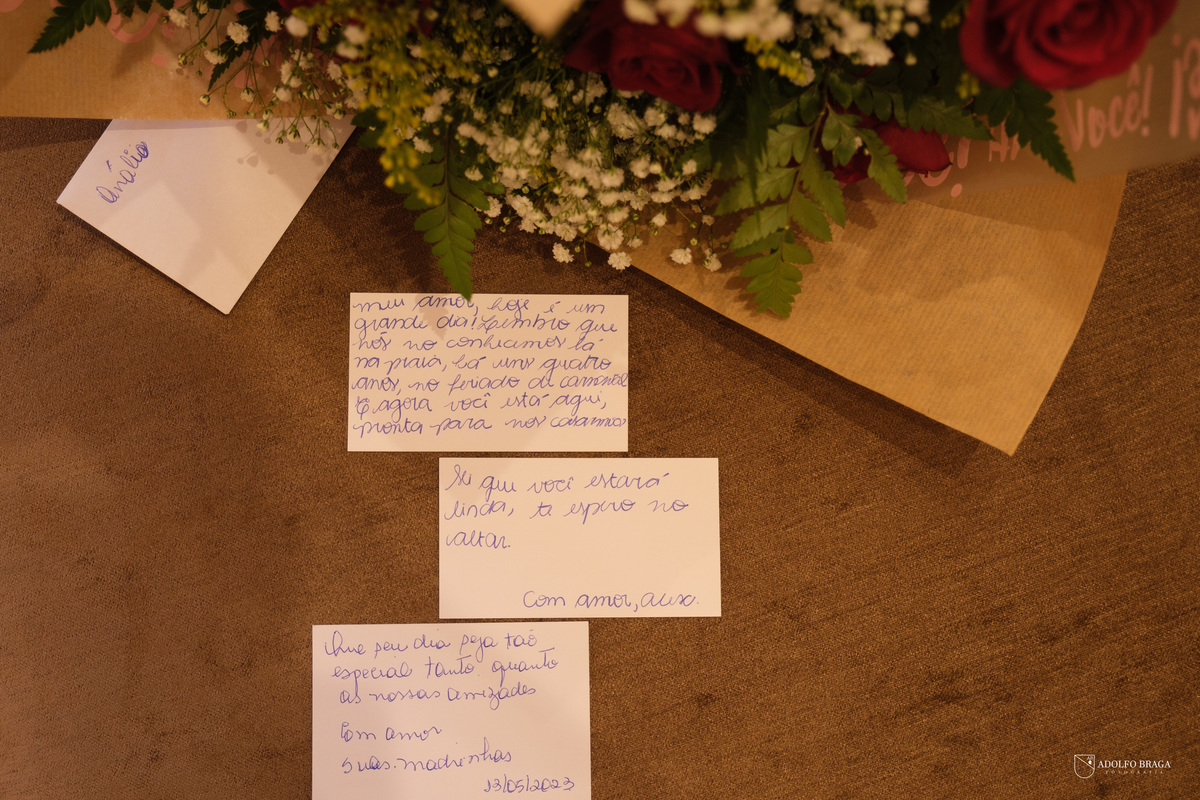 Você!
Análio
meu amor, hoje é um
grande dia! Lembro que
nós no conhecemos lá
na praia, há uns quatro
anos, no feriado de carnaval
E agora você está aqui,
pronta para nos casarmos
Sei que você estará
linda, te espero no
altar.
Com amor, Alex.
Que seu dia seja tão
especial tanto quanto
as nossas amizades
Com amor
suas madrinhas
13/05/2023
ADOLFO BRAGA
FOTOGRAFIA